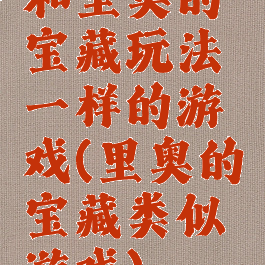 和里奥的
宝藏玩法
一样的游
戏(里奥的
宝藏类似
游戏)